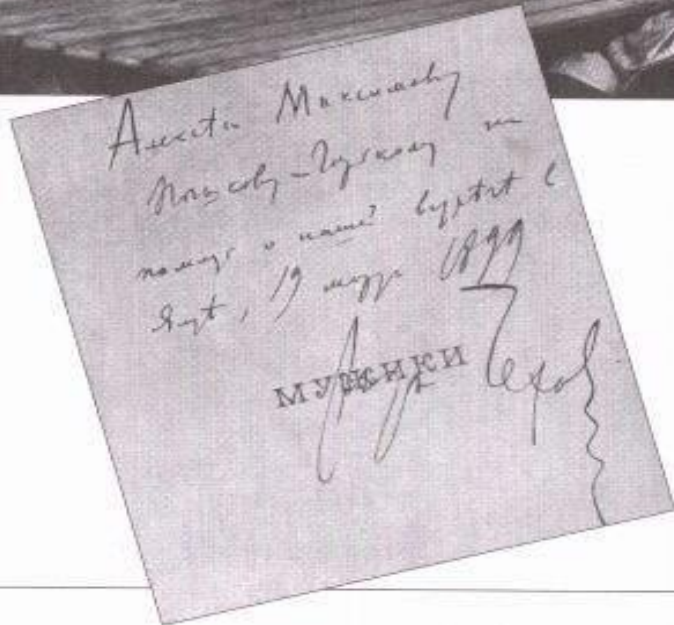 Алексѣю Максимовичу
Пѣшкову-Горькому на
память о нашей встрѣчѣ в
Ялтѣ, 19 марта 1899
МУЖИКИ
Чехов